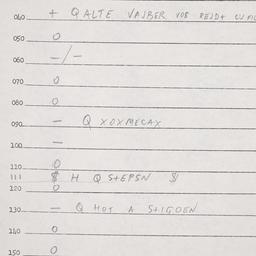 040 + Q ALTE VAJBER VOS REJDT
050 0
060 -/-
070 0
080 0
090 - Q XOXMECAX
100 -
110 0
111 $ H Q S+EPSN $
120 0
130 - Q HOT A S+IGOEN
140 0
150 0